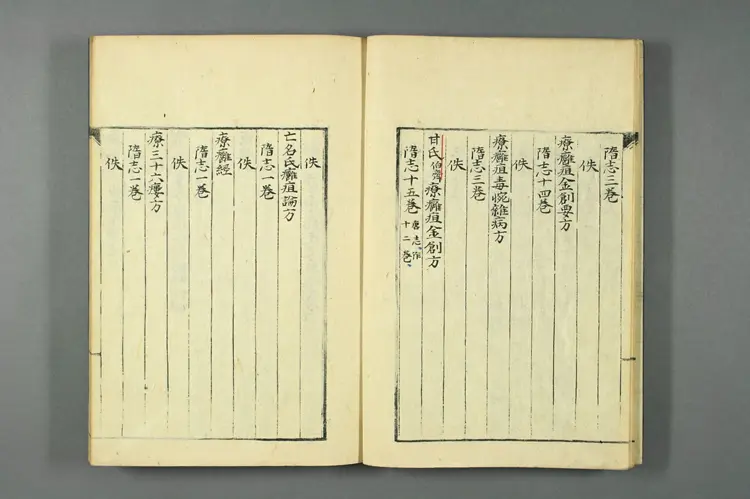 隋志三巻
佚
療癰疽金創要方
隋志十四巻
佚
療癰疽毒惋雜病方
隋志三巻
佚
甘氏伯齊療癰疽金創方
隋志十五巻唐志作十二巻
佚
亡名氏癰疽論方
隋志一巻
佚
療癰經
隋志一巻
佚
療三十六瘻方
隋志一巻
佚